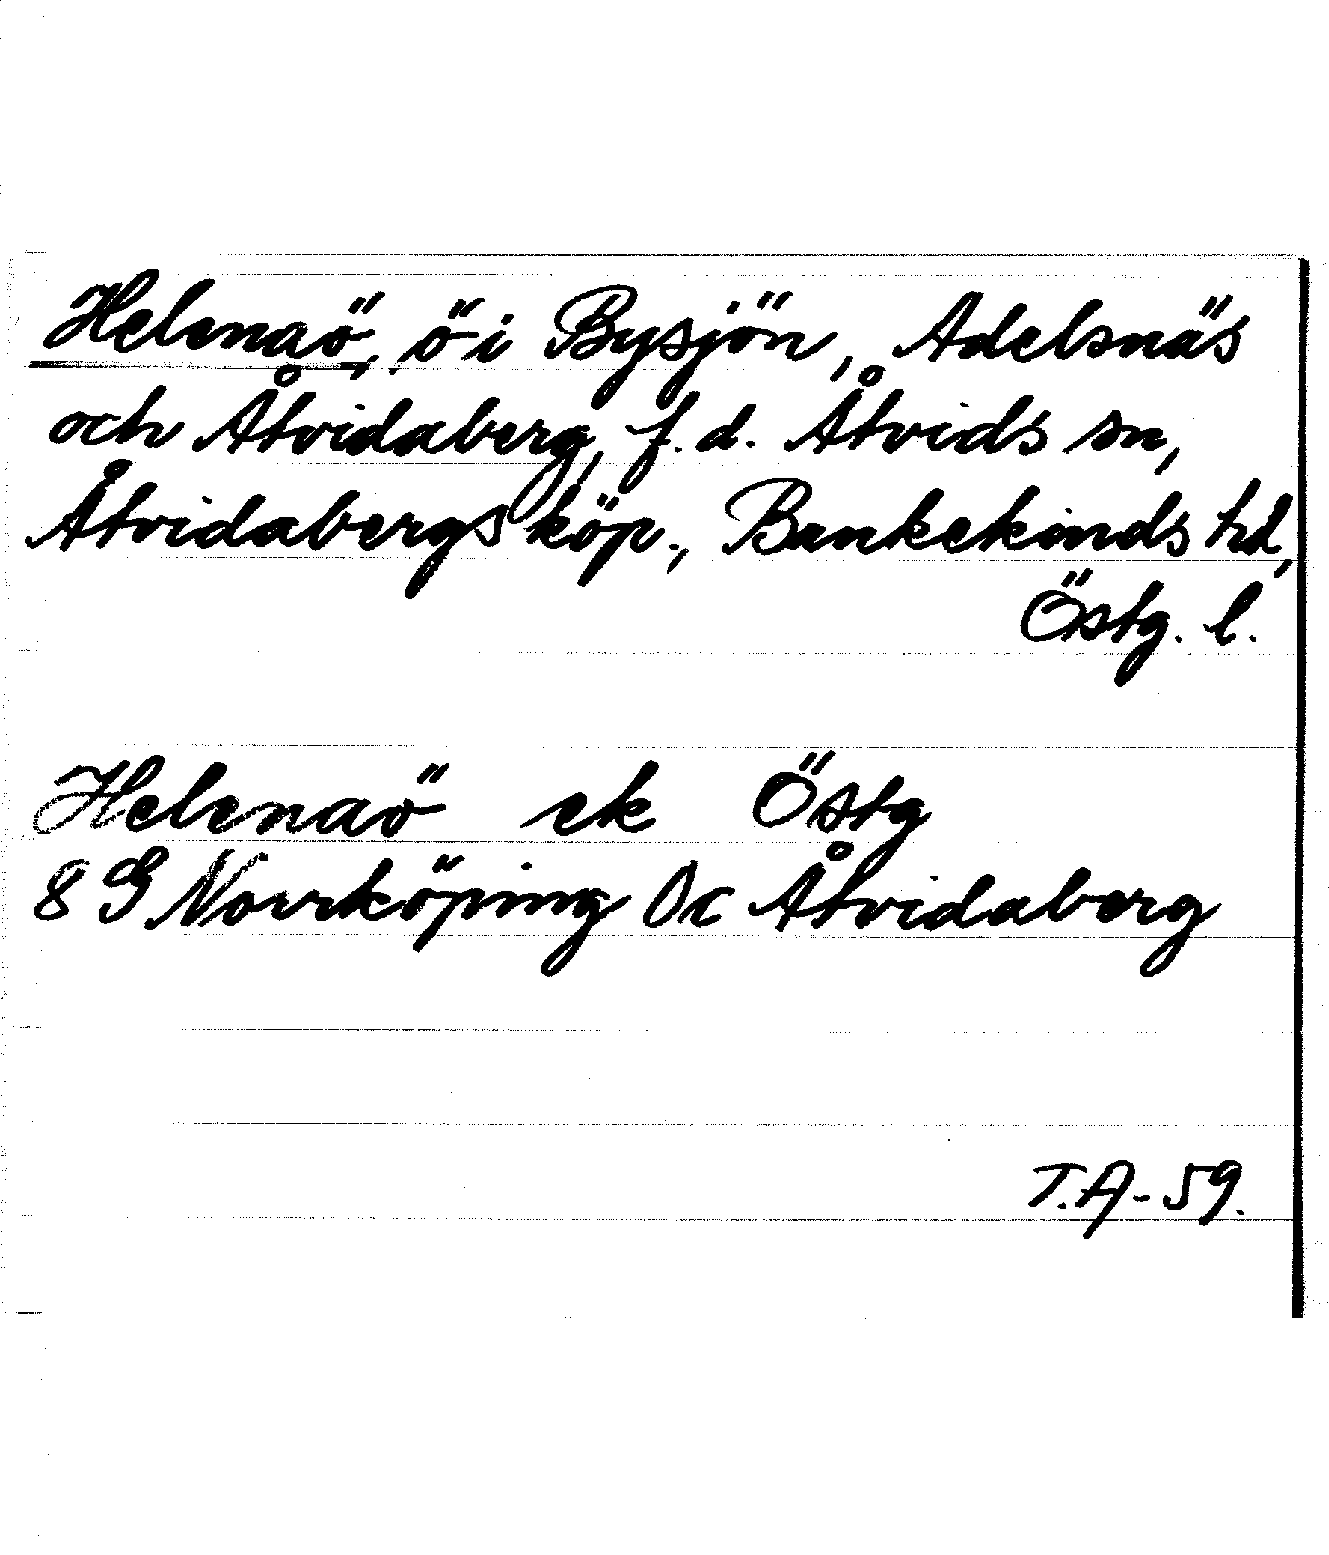 Helenaö, ö i Bysjön, Adelsnäs
och Åtvidaberg, f. d. Åtvids sn,
Åtvidabergs köp., Bankekinds hd,
Östg. l.
Helenaö ek Östg
8 G Norrköping SV c Åtvidaberg
T.A-59.